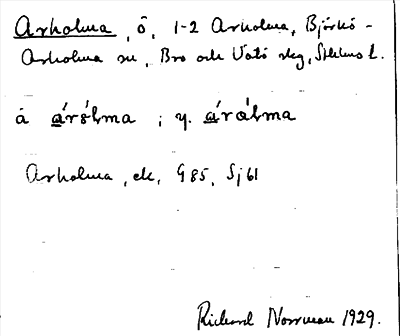 Arholma, ö, 1-2 Arholma, Björkö-
Arholma sn, Bro och Vätö skg, Sthlms l.
å árólma ; y. áràlma
Arholma, ek, G 85, Sj 61
Rickard Norrman 1929.